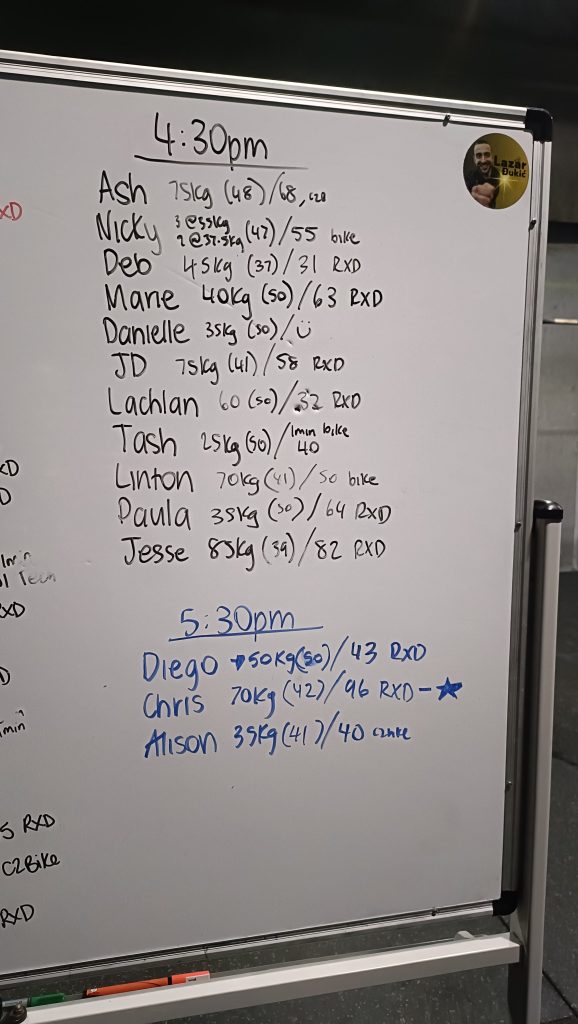 4:30pm
Lazar
Đukić
XD
Ash 75kg (48)/68, c20
Nicky 3 @55kg 2 @57.5kg (47)/55 bike
Deb 45kg (37)/31 RXD
Marie 40kg (50)/63 RXD
Danielle 35kg (50)/
JD 75kg (41)/58 RXD
Lachlan 60 (50)/32 RXD
Tash 25kg (50)/1min bike 40
XD
Linton 70kg (41)/50 bike
D
Paula 35kg (50)/64 RXD
Jesse 85kg (39)/82 RXD
1min
Tech
XD
5:30pm
Diego 50kg (50)/43 RXD
D
Chris 70kg (42)/96 RXD -
min
Alison 35kg (41)/40
5 RXD
C2Bike
RXD